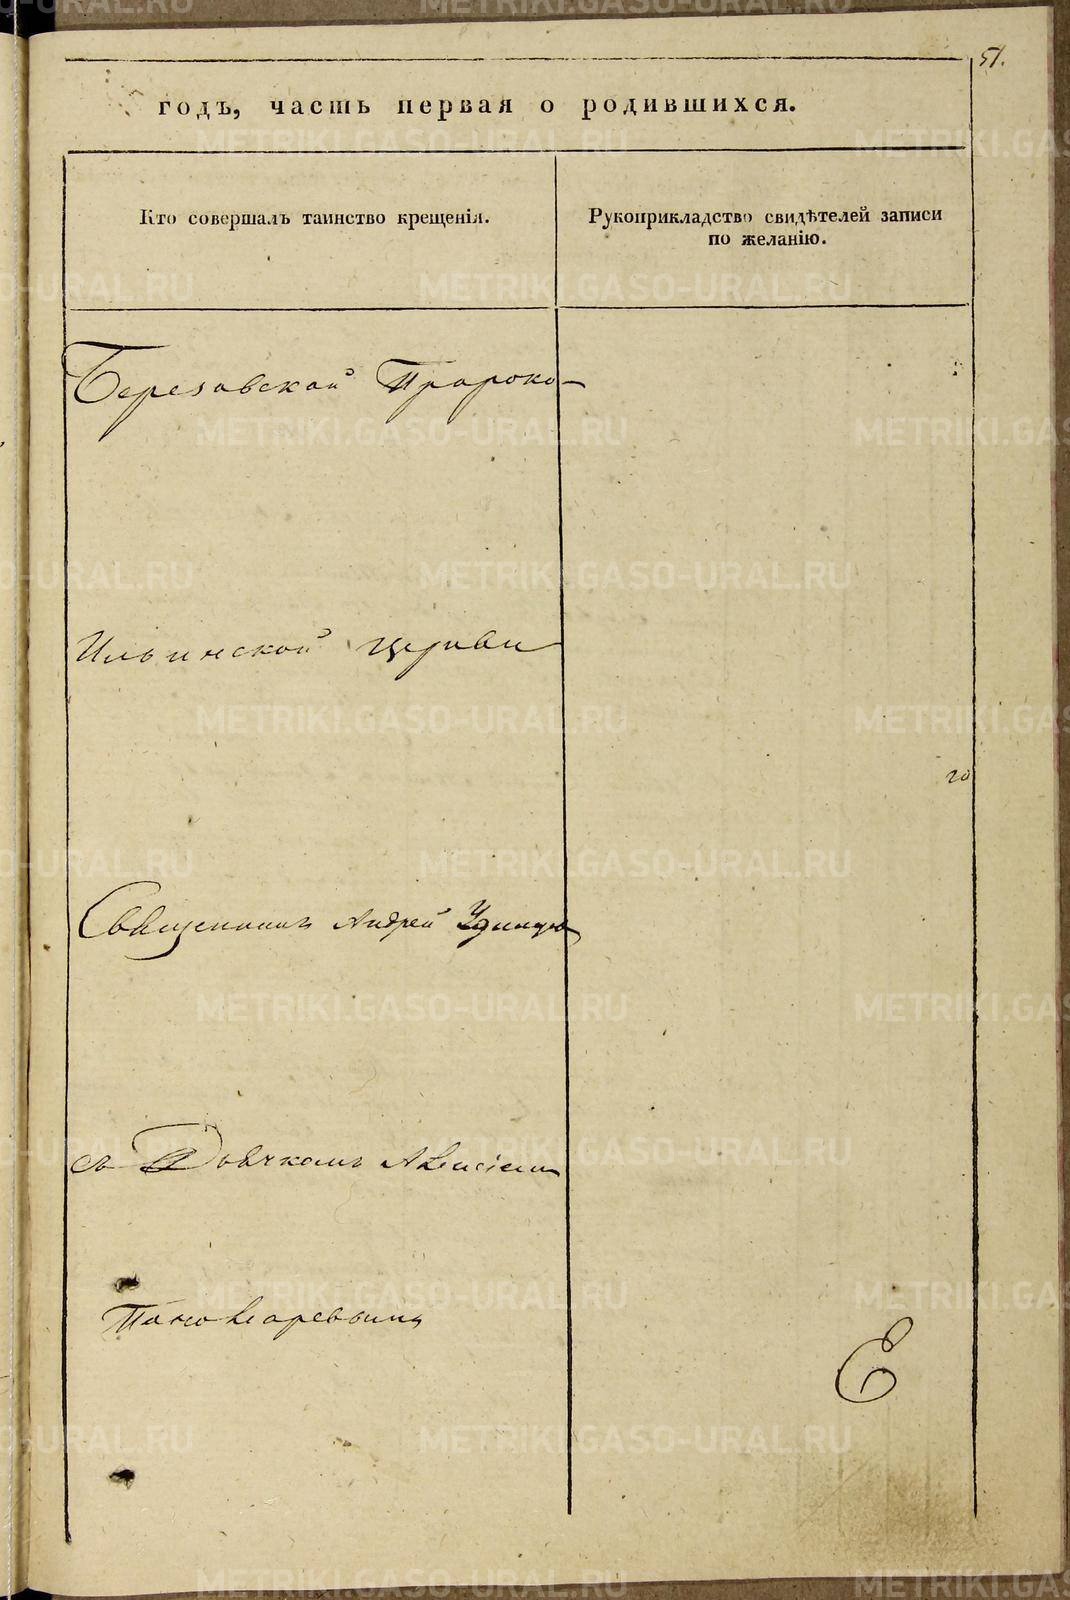 51.
годъ, часть первая о родившихся.
Кто совершалъ таинство крещенія.
Рукоприкладство свидѣтелей записи
по желанію.
Березовской Пророко-
Ильинской церкви
го
Священникъ Андрей Удинцов
съ Дьячкомъ Алексіем
Е
METRIKI.GASO-URAL.RU